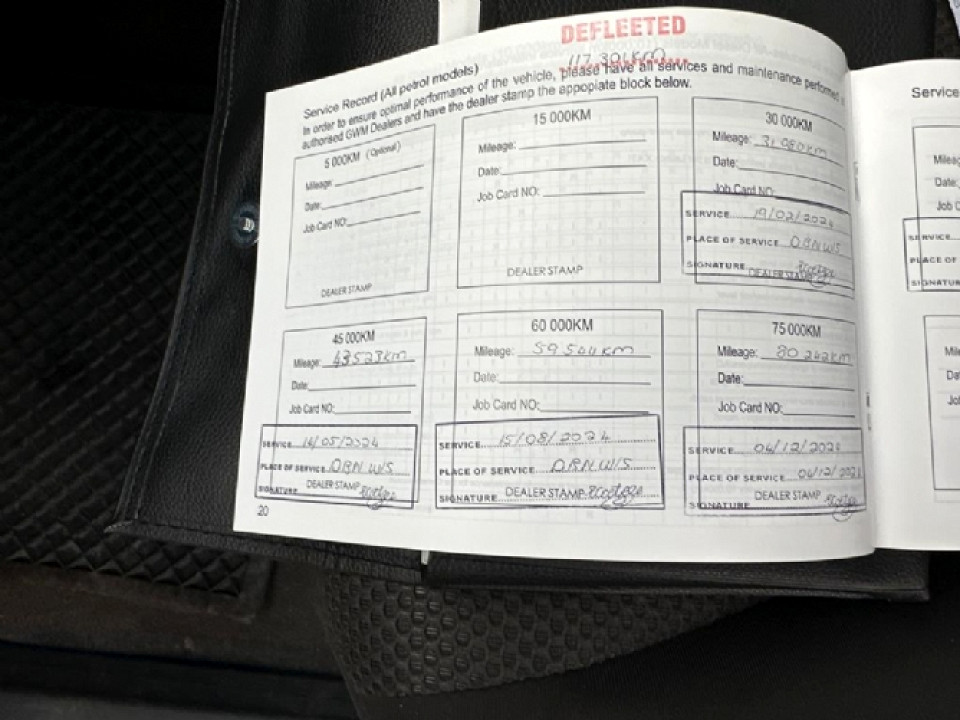 DEFLEETED
117 391KM
Service Record (All petrol models)
In order to ensure optimal performance of the vehicle, please have all services and maintenance performed
authorised GWM Dealers and have the dealer stamp the appopiate block below.
5 000KM (Optional)
Mileage:
Date:
Job Card NO:
DEALER STAMP
15 000KM
Mileage:
Date:
Job Card NO:
DEALER STAMP
30 000KM
Mileage: 31 980km
Date:
Job Card NO:
SERVICE 19/02/2024
PLACE OF SERVICE DBN W/S
SIGNATURE
DEALER STAMP
45 000KM
Mileage: 43523km
Date:
Job Card NO:
SERVICE 14/05/2024
PLACE OF SERVICE DBN W/S
DEALER STAMP
SIGNATURE
60 000KM
Mileage: 59 504km
Date:
Job Card NO:
SERVICE 15/08/2024
PLACE OF SERVICE DBN W/S
SIGNATURE DEALER STAMP
75 000KM
Mileage: 80 242km
Date:
Job Card NO:
SERVICE 04/12/2024
PLACE OF SERVICE 04/12/2024
DEALER STAMP
SIGNATURE
20
Service
Mileag
Date:
Job C
SERVICE
PLACE OF
SIGNATUR
Mil
Da
Jo